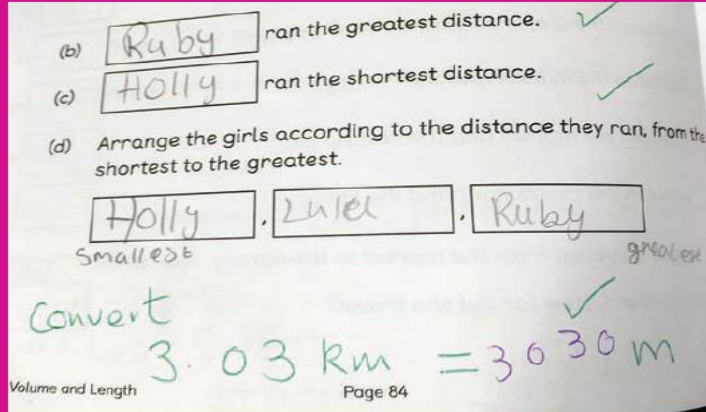 (b) Ruby ran the greatest distance.
(c) Holly ran the shortest distance.
(d) Arrange the girls according to the distance they ran, from the
shortest to the greatest.
Holly , , Ruby
Smallest
Convert
3.03 km = 3030 m
Volume and Length Page 84